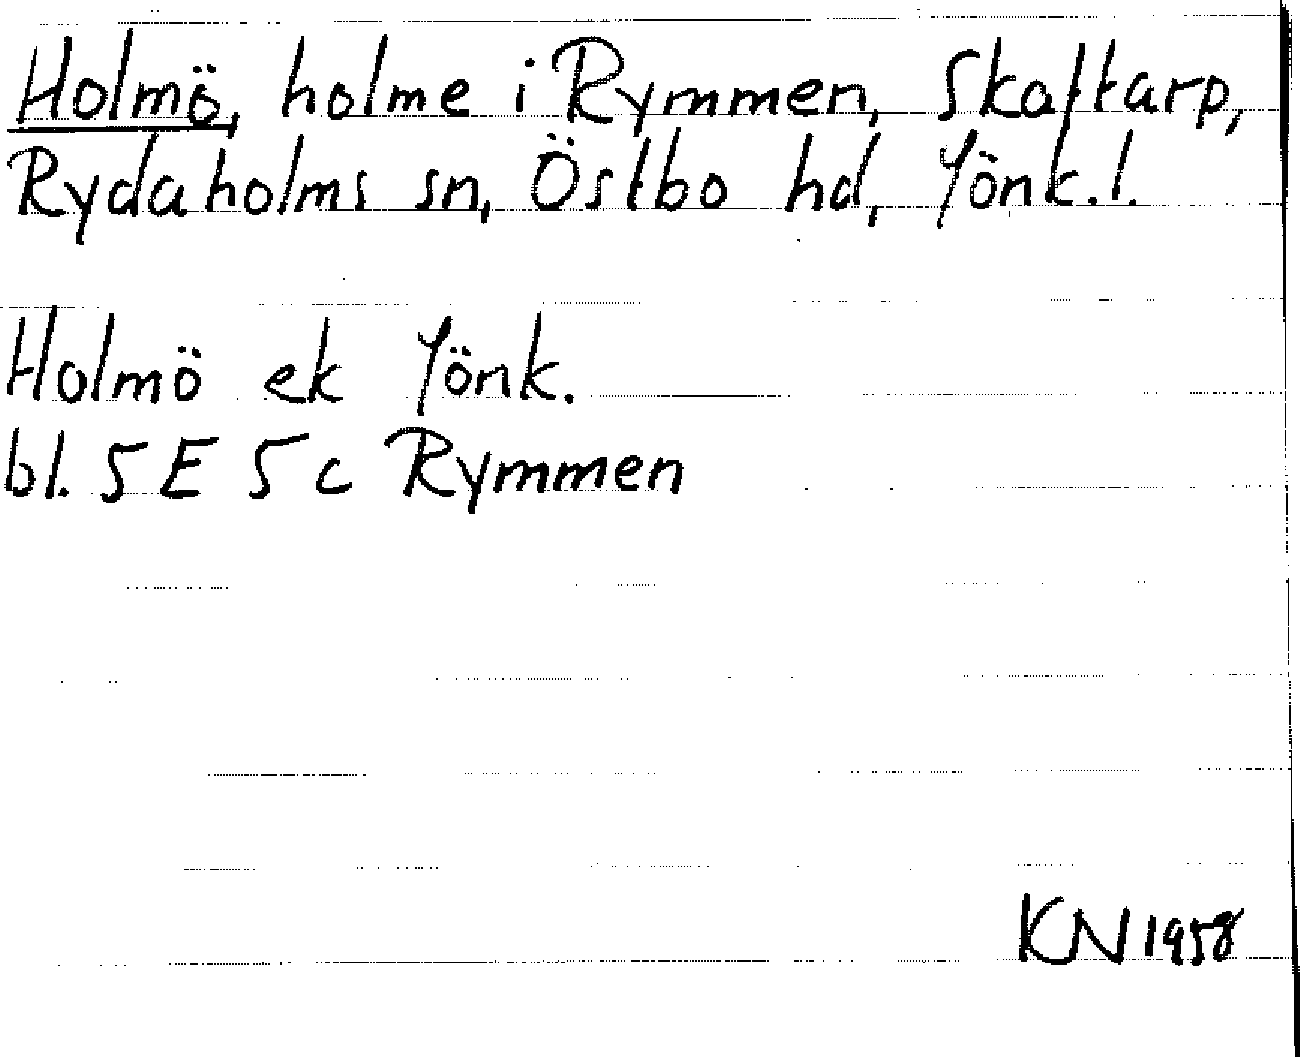 Holmö, holme i Rymmen, Skaftarp,
Rydaholms sn, Östbo hd, Jönk.l.
Holmö ek Jönk.
bl. 5 E 5 c Rymmen
KN 1958